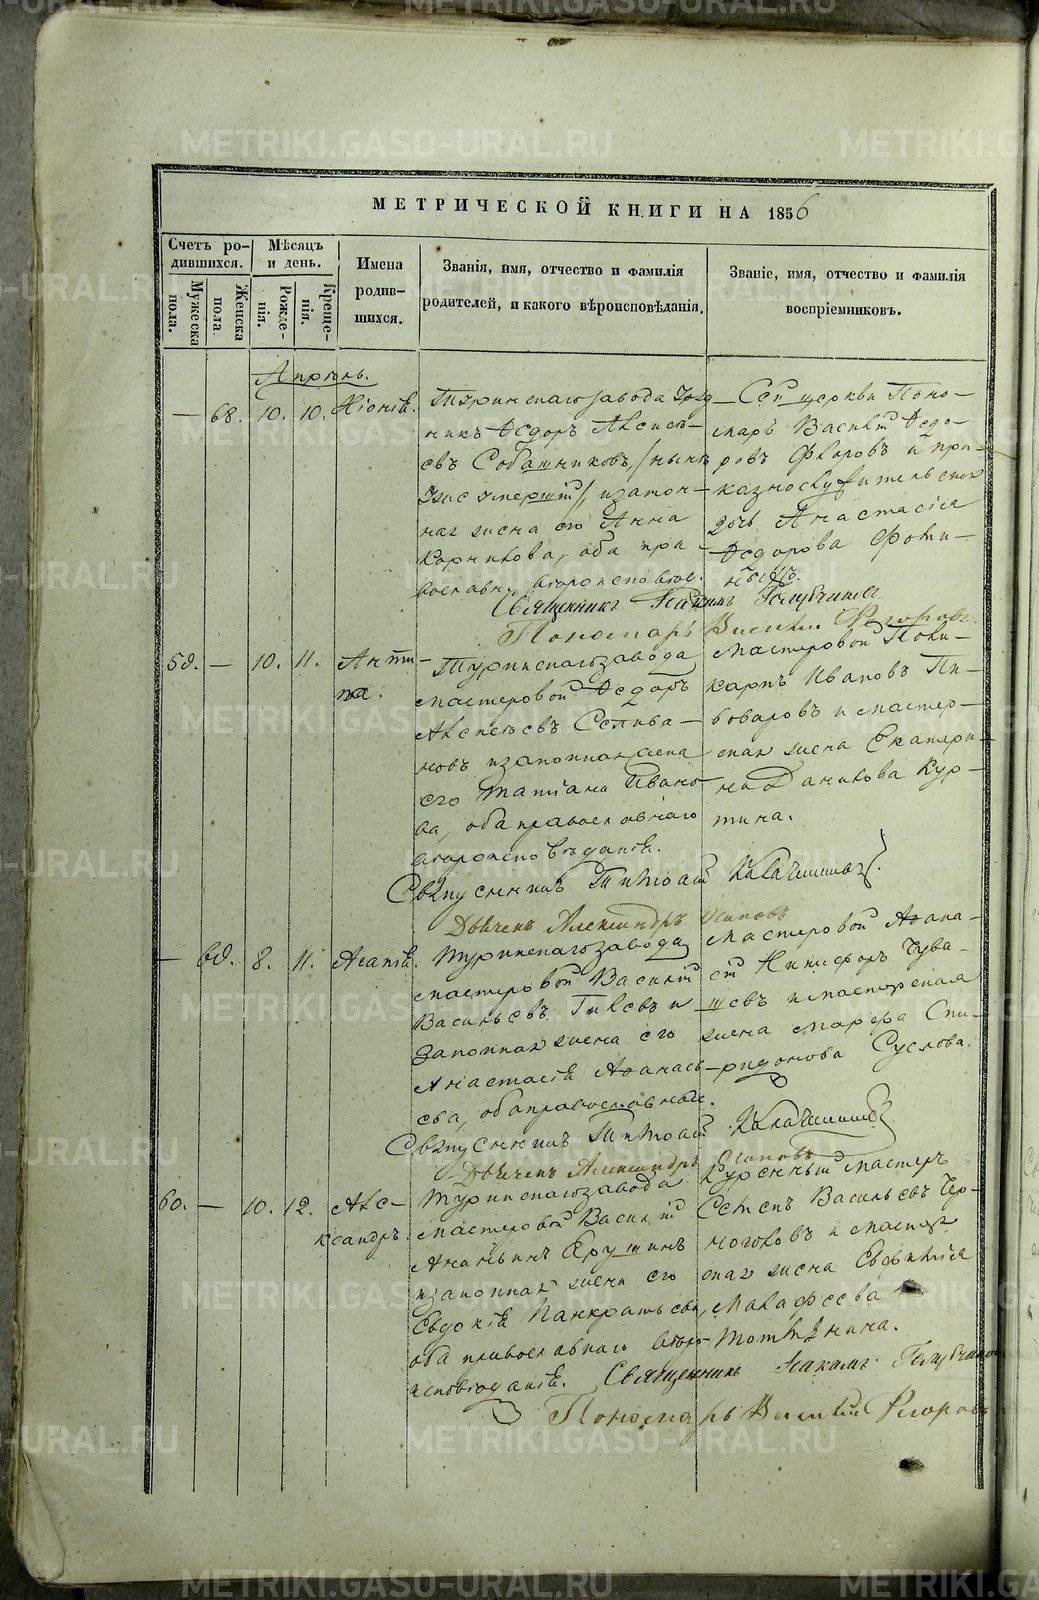 МЕТРИЧЕСКОЙ КНИГИ НА 1856
Счетъ ро-
дившихся.
Мужеска
пола.
Женска
пола
Мѣсяцъ
и день.
Рожде-
нія.
Креще-
нія.
Имена
родив-
шихся.
Званія, имя, отчество и фамилія
родителей, и какого вѣроисповѣданія.
Званіе, имя, отчество и фамилія
воспріемниковъ.
Апрѣль.
— 68. 10. 10.
Туринскаго завода
никъ Ѳедоръ Алексѣ-
евъ Собашниковъ, /нынѣ
уже умершій/, и закон-
ная жена его Анна
Корнилова, оба пра-
вославн. вѣроисповѣд.
Сей церкви Поно-
марь Василій Ѳедо-
ровъ Флоровъ и при-
казнослужительская
дочь Анастасія
Ѳедорова Фоти-
Священникъ Іоакимъ
Пономарь Василій
59. — 10. 11. Анти-
па.
Туринскаго завода
мастеровой Ѳедоръ
Алексѣевъ Селива-
новъ и законная жена
его Татіана Ивано-
ва, оба православнаго
вѣроисповѣданія.
Мастеровой Поли-
карпъ Ивановъ Пи-
воваровъ и мастер-
ская жена Екатери-
на Данилова Кур-
тина.
Священникъ
Дьячекъ Александръ Осиповъ
— 69. 8. 11. Агапія.
Туринскаго завода
мастеровой Василій
Васильевъ Гилевъ и
законная жена его
Анастасія Аѳанась-
ева, оба православные.
Мастеровой Аѳана-
сій Никифоръ Чува-
шевъ и мастерская
жена Марѳа Спи-
ридонова Суслова.
Священникъ
Дьячекъ Александръ Осиповъ
60. — 10. 12. Але-
ксандръ.
Туринскаго завода
мастеровой Василій
Ананьинъ Ерушинъ
и законная жена его
Евдокія Панкратьева,
оба православнаго вѣро-
исповѣданія.
Куренный мастеръ
Степъ Васильевъ Чер-
ноголовъ и мастер-
ская жена Евфимія
Малафеева
Священникъ Іоакимъ
Пономарь Василій
METRIKI.GASO-URAL.RU